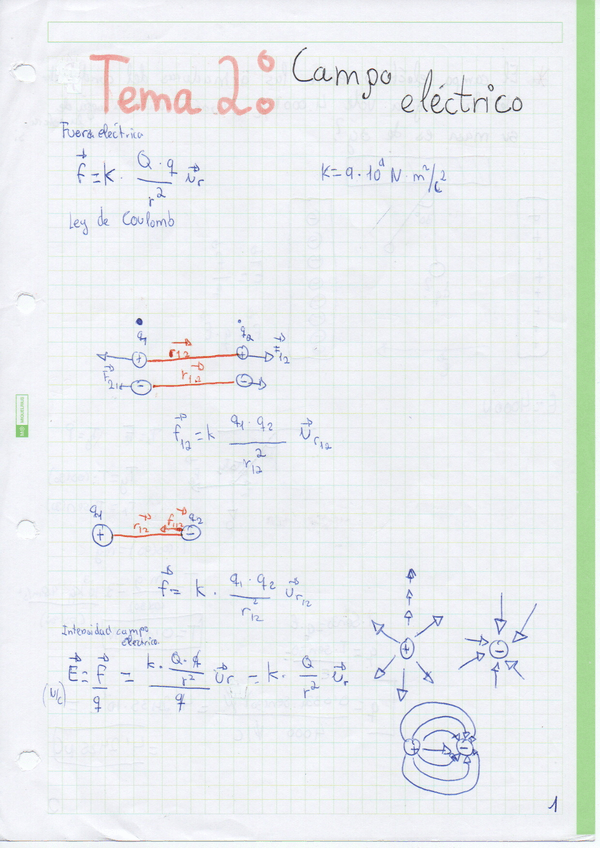 Tema 2: Campo eléctrico
Fuerza eléctrica
f⃗ = k · Q · q / r² u⃗r
K = 9 · 10⁹ N · m²/C²
Ley de Coulomb
q1 q2
+ r⃗12 + F⃗12
F⃗21 - r⃗12 -
f⃗12 = k q1 · q2 / r12² u⃗r12
q1 f⃗12 q2
+ r⃗12 -
f⃗ = k · q1 · q2 / r12² u⃗r12
Intensidad campo
eléctrico
E⃗ = f⃗ / q = k · Q · q / r² u⃗r / q = k · Q / r² u⃗r
+ -
+ -
1